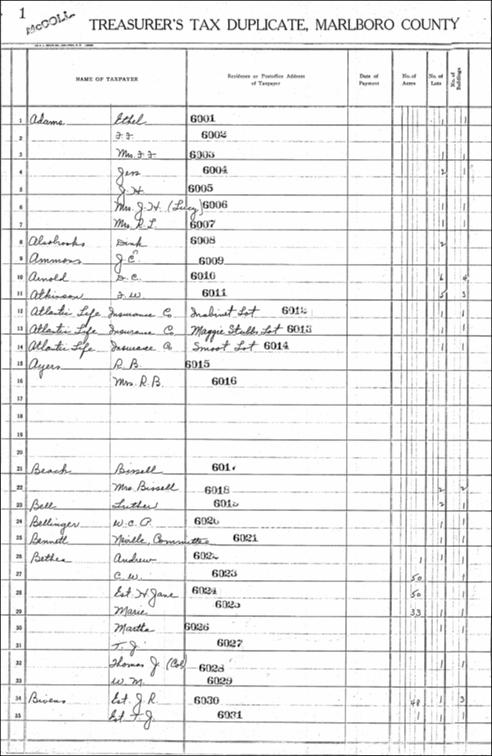 1
McCOLL
TREASURER'S TAX DUPLICATE, MARLBORO COUNTY
NAME OF TAXPAYER Residence or Postoffice Address of Taxpayer Date of Payment No. of Acres No. of Lots No. of Buildings
1 Adams Ethel 6001 1 1
2 F. F. 6002
3 Mrs. F. F. 6003 1 1
4 Jess 6004 2 1
5 J. H. 6005
6 Mrs. J. H. (Lucy) 6006 1 1
7 Mrs. R. L. 6007 1 1
8 Alsobrooks Dink 6008 2
9 Ammons J. C. 6009
10 Arnold D. C. 6010 6 6
11 Atkinson F. W. 6011 5 3
12 Atlantic Life Insurance Co Inabinet Lot 6012 1 1
13 Atlantic Life Insurance Co Maggie Stubbs Lot 6013 1 1
14 Atlantic Life Insurance Co Smoot Lot 6014 1 1
15 Ayers R. B. 6015
16 Mrs. R. B. 6016 1 1
17
18
19
20
21 Beach Bissell 601
22 Mrs. Bissell 6018 2 2
23 Bell Luther 601 2 1
24 Bellinger W. C. P. 6020 1 1
25 Bennett Neville, Committee 6021 1 1
26 Bethea Andrew 602 1 1
27 C. W. 6023 50 1
28 Est. H Jane 6024 50
29 Marie 6025 33 1 1
30 Martha 6026 1 1
31 T. J. 6027
32 Thomas J. (Col) 6028 1 1
33 W. M. 6029
34 Bivens Est. J. R. 6030 48 1 3
35 Est. T. J. 6031 1 1